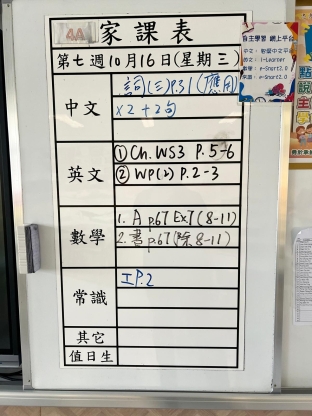 4A 家課表
自主學習 網上平台
中文：智愛中文平台
英文：i-Learner
數學：e-Smart2.0
常識：e-Smart2.0
第七週10月16日(星期三)
中文
詞(三)P.31(應用)
x2+2句
英文
① Ch. WS3 P.5-6
② WP(2) P.2-3
數學
1. A p.67 Ex7(8-11)
2. 書 p.67(除8-11)
常識
工P.2
其它
值日生
點
說
主
學